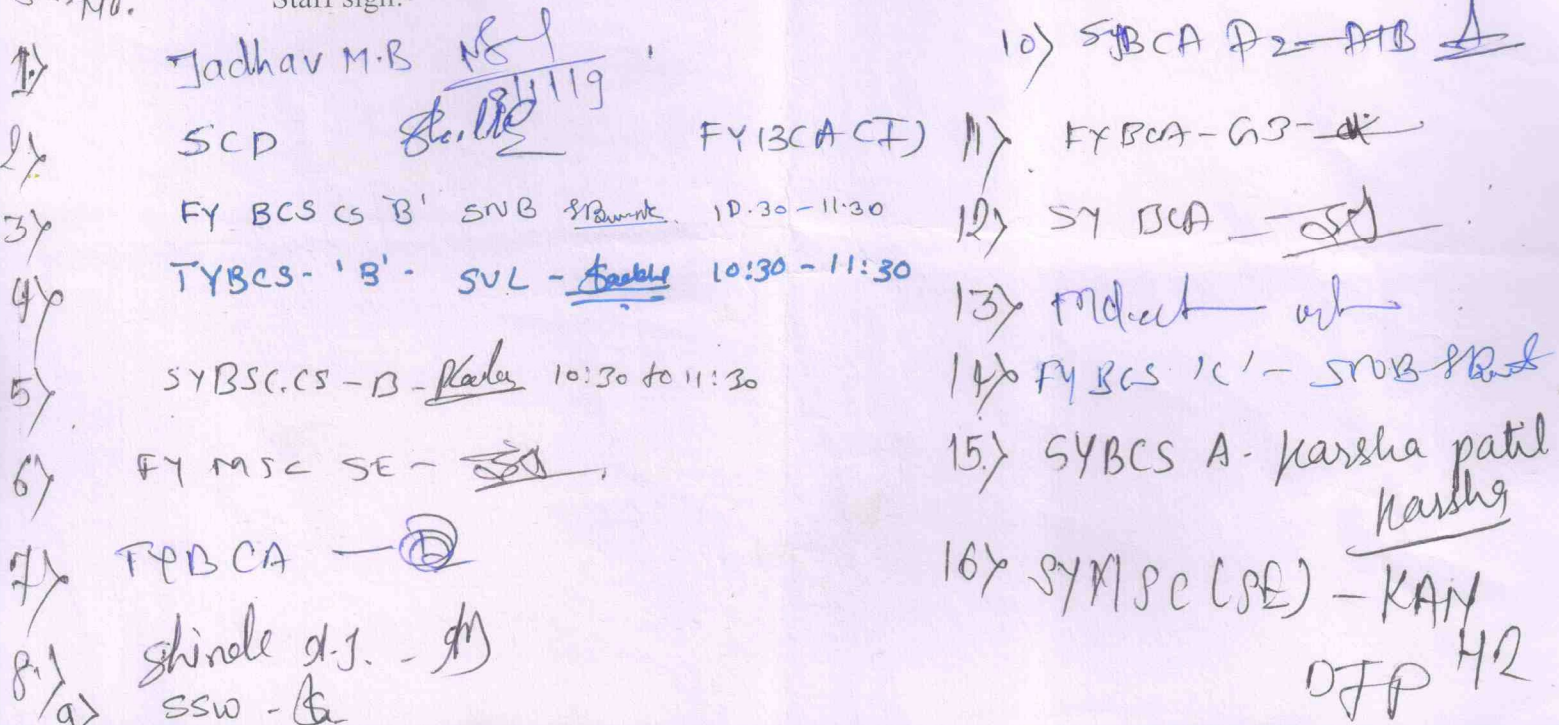 No. Staff sign.
1) Jadhav M.B
8/1/19
2) SCD FYBCA (I)
3) FY BCS CS 'B' SNB 10.30 - 11.30
4) TYBCS - 'B' - SVL - 10:30 - 11:30
5) SYBSC.CS - B - 10:30 to 11:30
6) FY MSC SE -
7) TYBCA -
8) Shinde A.J. -
9) SSW -
10) SYBCA
11) FYBCA - GB -
12) SY BCA -
13)
14) FYBCS 'C' - SNB
15) SYBCS A. Harsha patil
Harsha
16) SYMSC (SE) - KAN
DJP H2